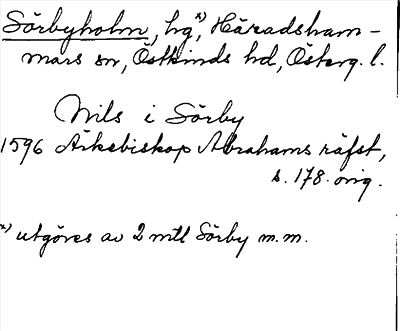 Sörbyholm, hg,x) Häradsham-
mars sn, Östkinds hd, Österg. l.
Nils i Sörby
1596 Ärkebiskop Abrahams räfst,
s. 178. orig.
x) utgöres av 2 mtl Sörby m.m.